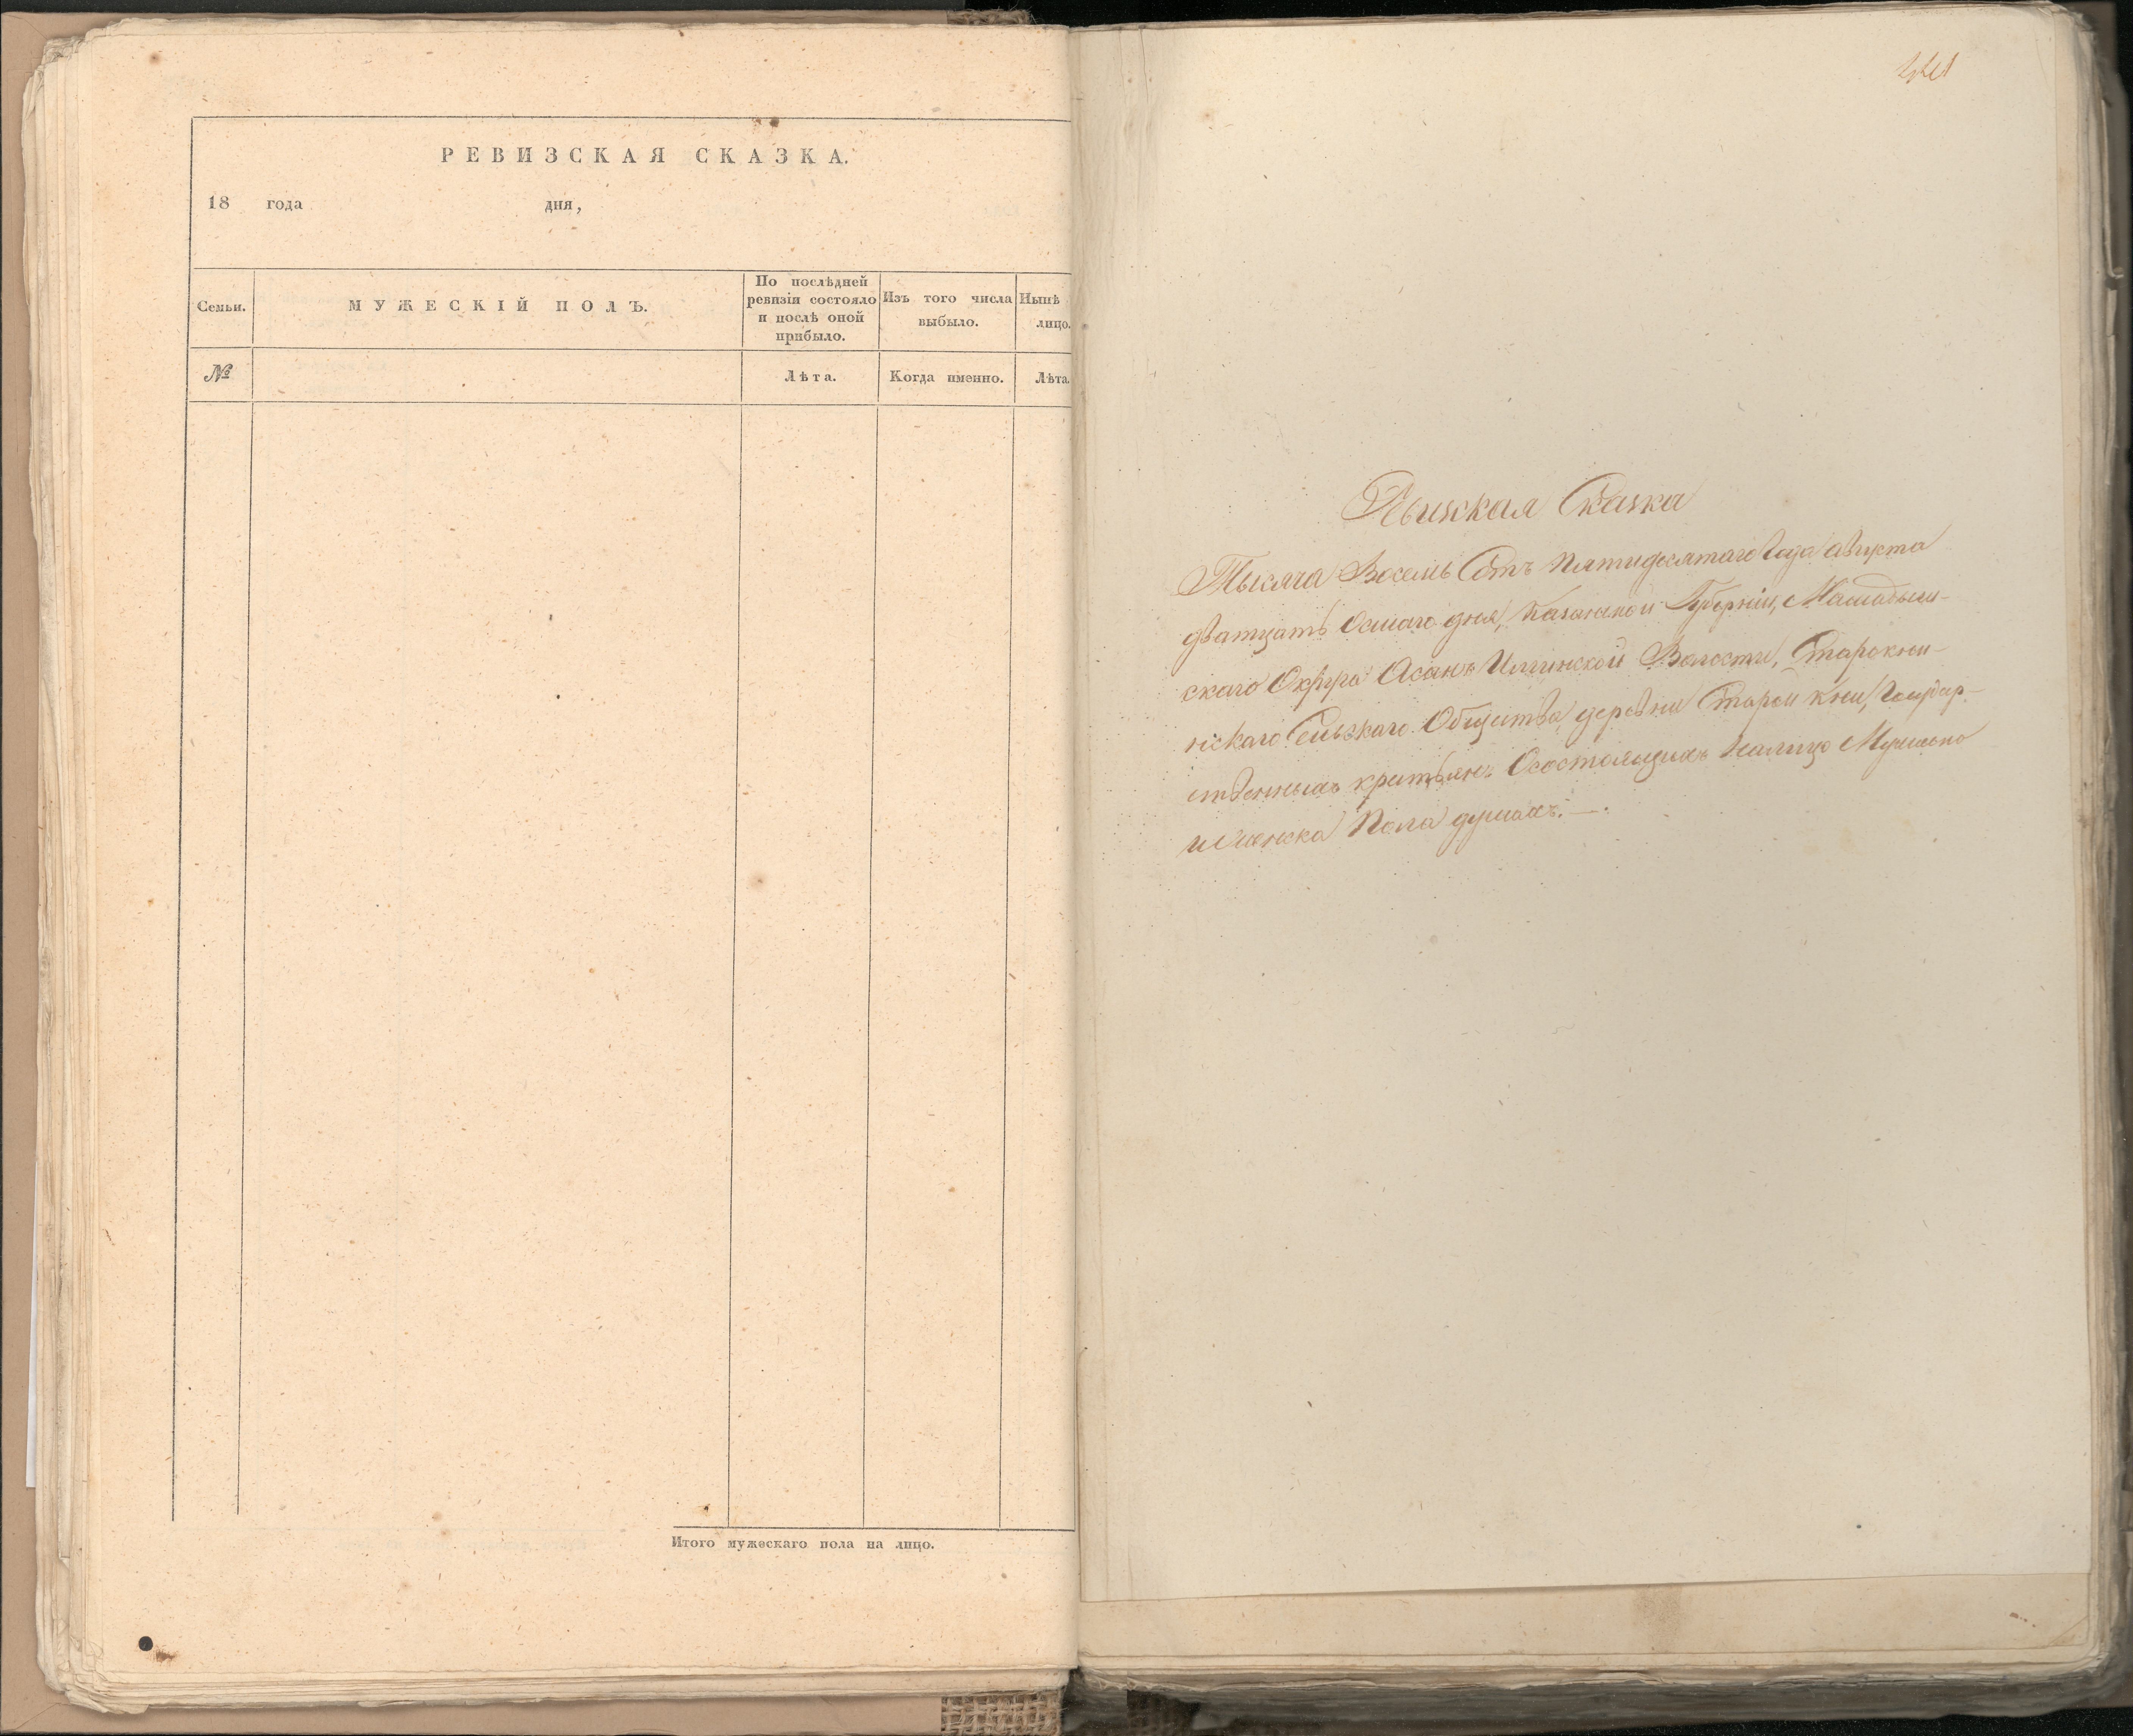 РЕВИЗСКАЯ СКАЗКА.
18 года дня,
Семьи.
МУЖЕСКІЙ ПОЛЪ.
По послѣдней
ревизіи состояло
и послѣ оной
прибыло.
Изъ того числа
выбыло.
Нынѣ
лицо.
№
Лѣта.
Когда именно.
Лѣта
Итого мужескаго пола на лицо.
Сказка
Тысяча Восемь Сотъ Пятидесятаго Года Августа
дватцать Осмаго дня, Казанской Губерніи, Мамадыш-
скаго Округа Асанъ Илгинской Волости, Старокни-
нскаго Сельскаго Общества деревни Старой Кни, Государ-
ственныхъ крестьянъ Осостоящихъ Налицо Мужеска
и женска Пола душахъ. —.